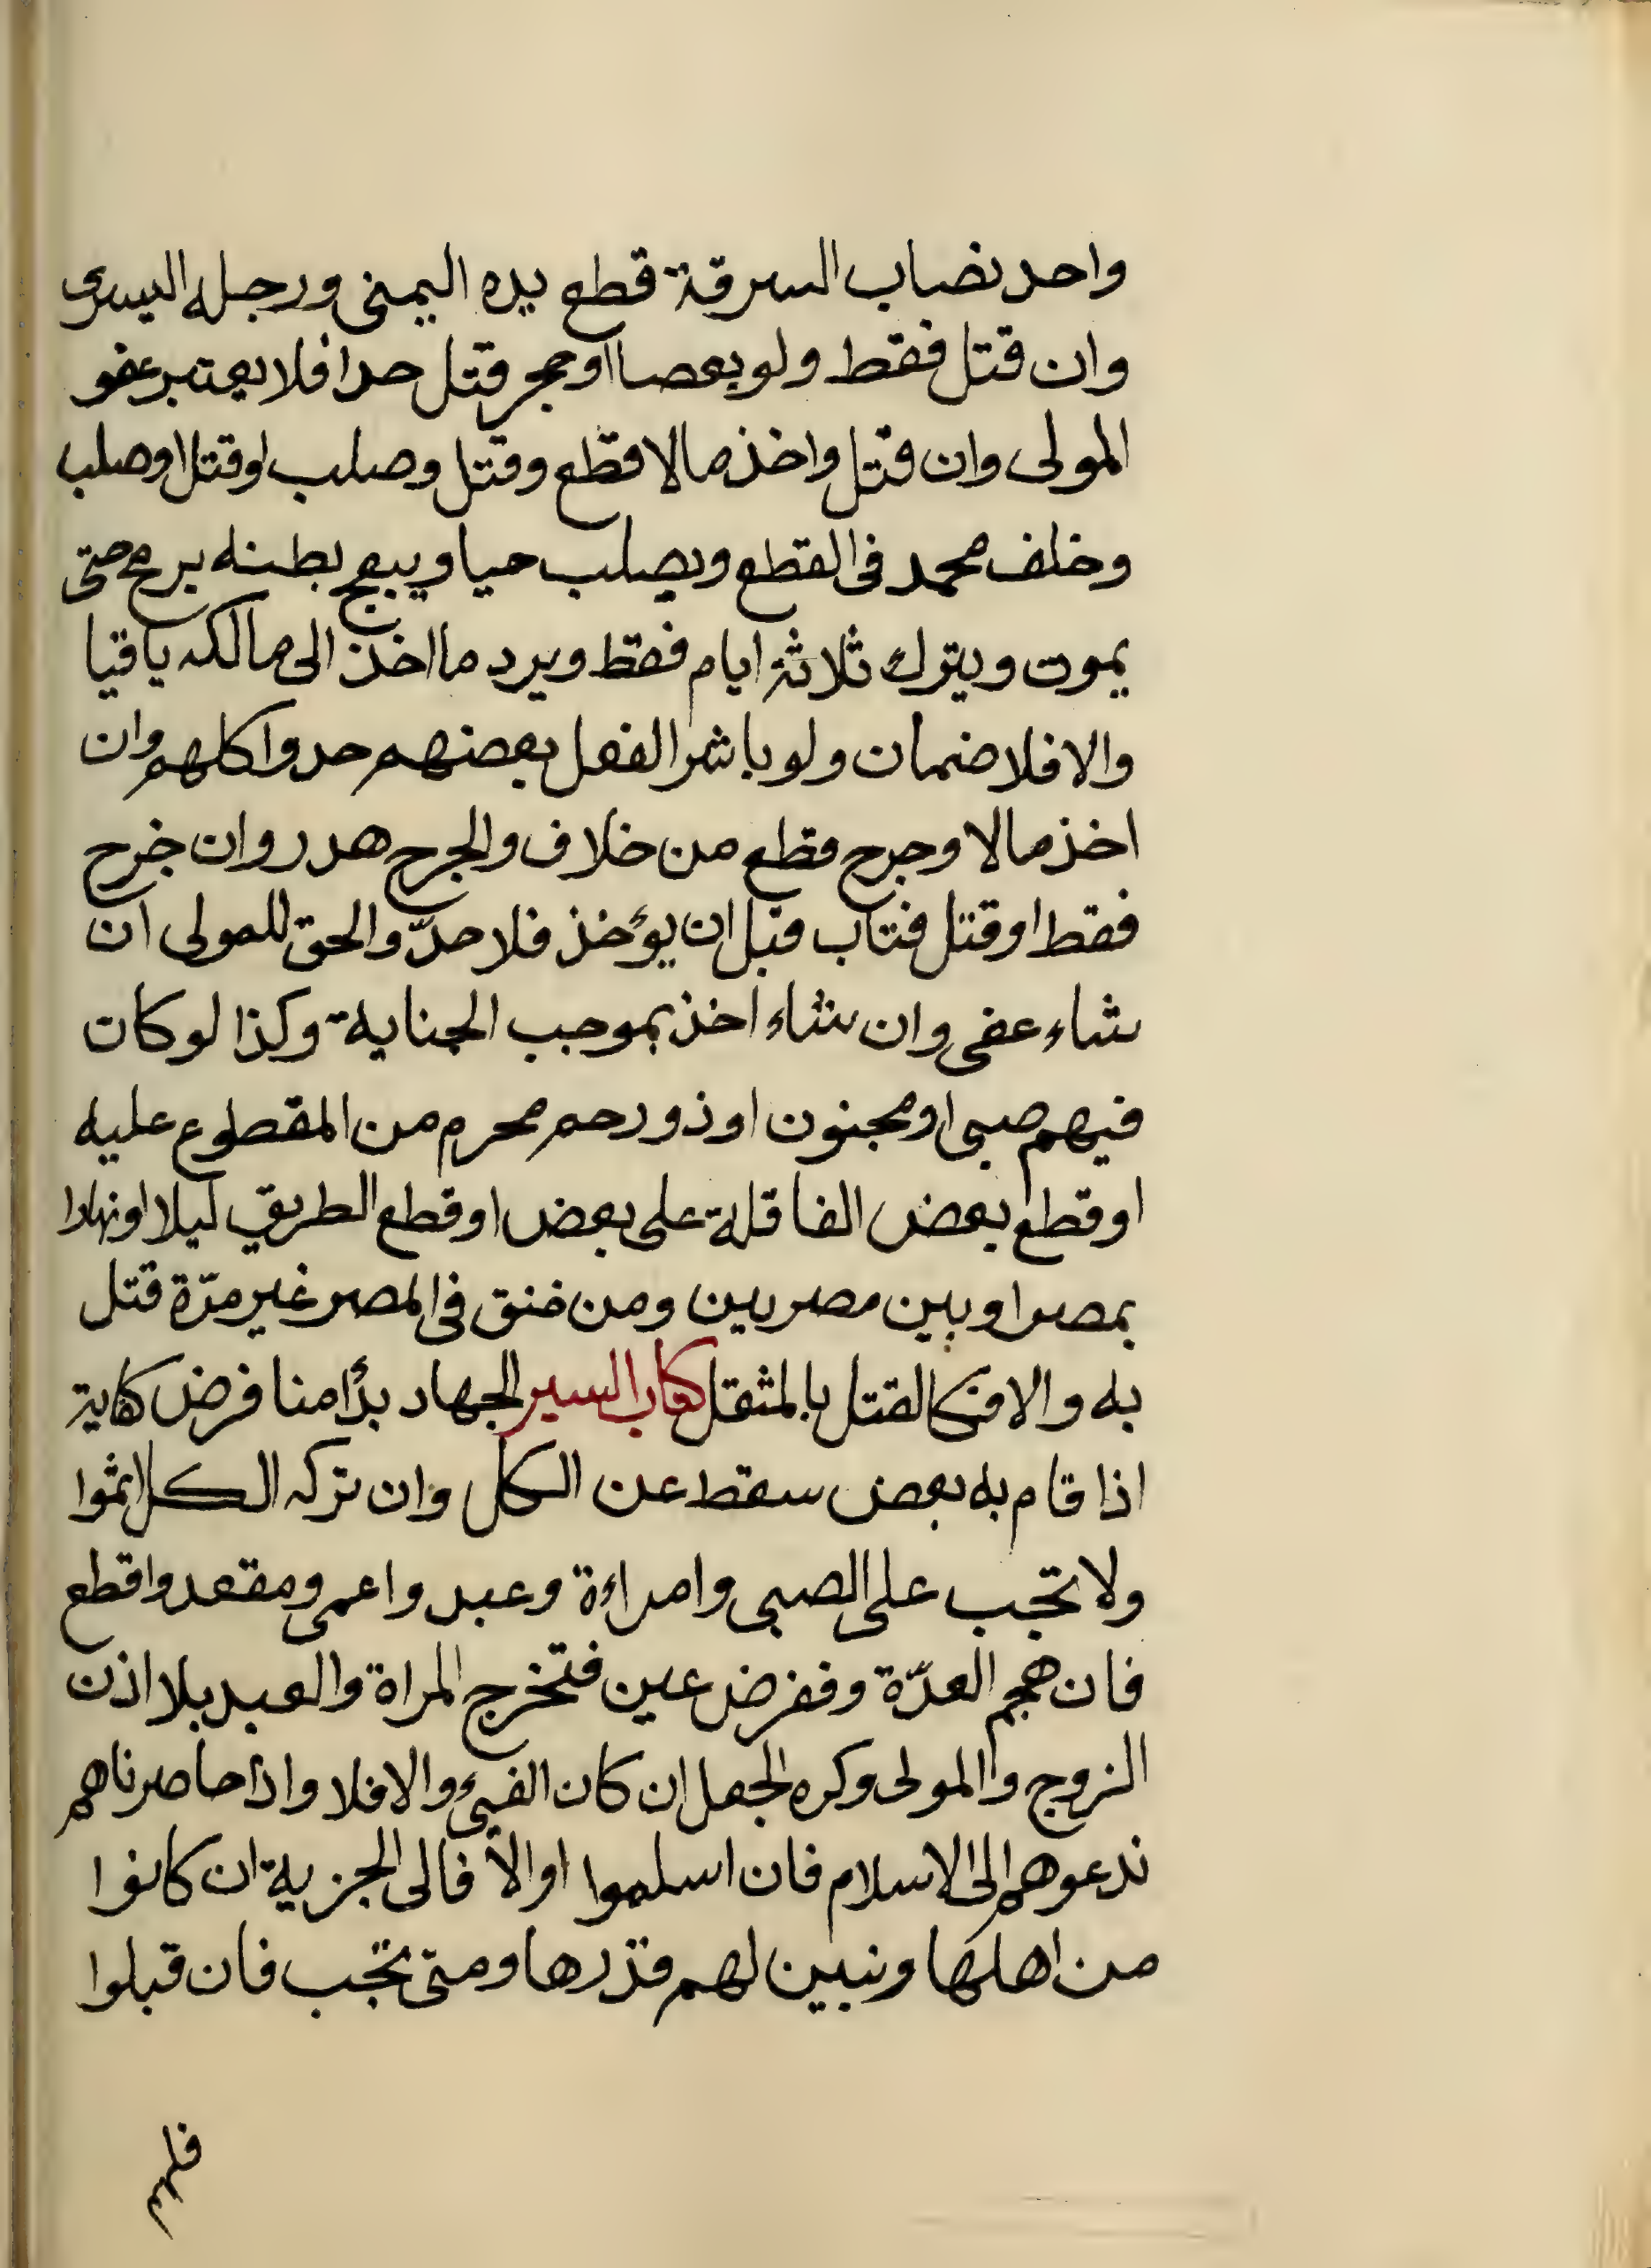 واحد نصاب السرقة قطع يده اليمنى ورجله اليسرى
وان قتل فقط ولو بعصا او حجر قتل حدا فلا يعتبر عفو
المولى وان قتل واخذ مالا قطع وقتل وصلب او قتل او صلب
وخلف محمد فى القطع ويصلب حيا ويبعج بطنه برمح حتى
يموت ويترك ثلاثة ايام فقط ويرد ما اخذ الى مالكه باقيا
والا فلا ضمان ولو باشر الفعل بعضهم حدوا كلهم وان
اخذ مالا وجرح قطع من خلاف والجرح هدر وان جرح
فقط او قتل فتاب قبل ان يؤخذ فلا حدّ والحق للمولى ان
شاء عفى وان شاء اخذ بموجب الجناية وكذا لو كان
فيهم صبى او مجنون او ذو رحم محرم من المقطوع عليه
او قطع بعض القافلة على بعض او قطع الطريق ليلا او نهارا
بمصر او بين مصريين ومن خنق فى المصر غير مرّة قتل
به والا فكالقتل بالمثقل كتاب السير الجهاد بدأ منا فرض كفاية
اذا قام به بعض سقط عن الكل وان تركه الكل اثموا
ولا تجب على الصبى وامراءة وعبد واعمى ومقعد واقطع
فان هجم العدّة وففرض عين فتخرج المراة والعبد بلا اذن
الزوج والمولى وكره الجعل ان كان الفىء والا فلا واذا حاصرناهم
ندعوهم الى الاسلام فان اسلموا اوالا فالى الجزية ان كانوا
من اهلها ونبين لهم قدرها ومتى تجب فان قبلوا